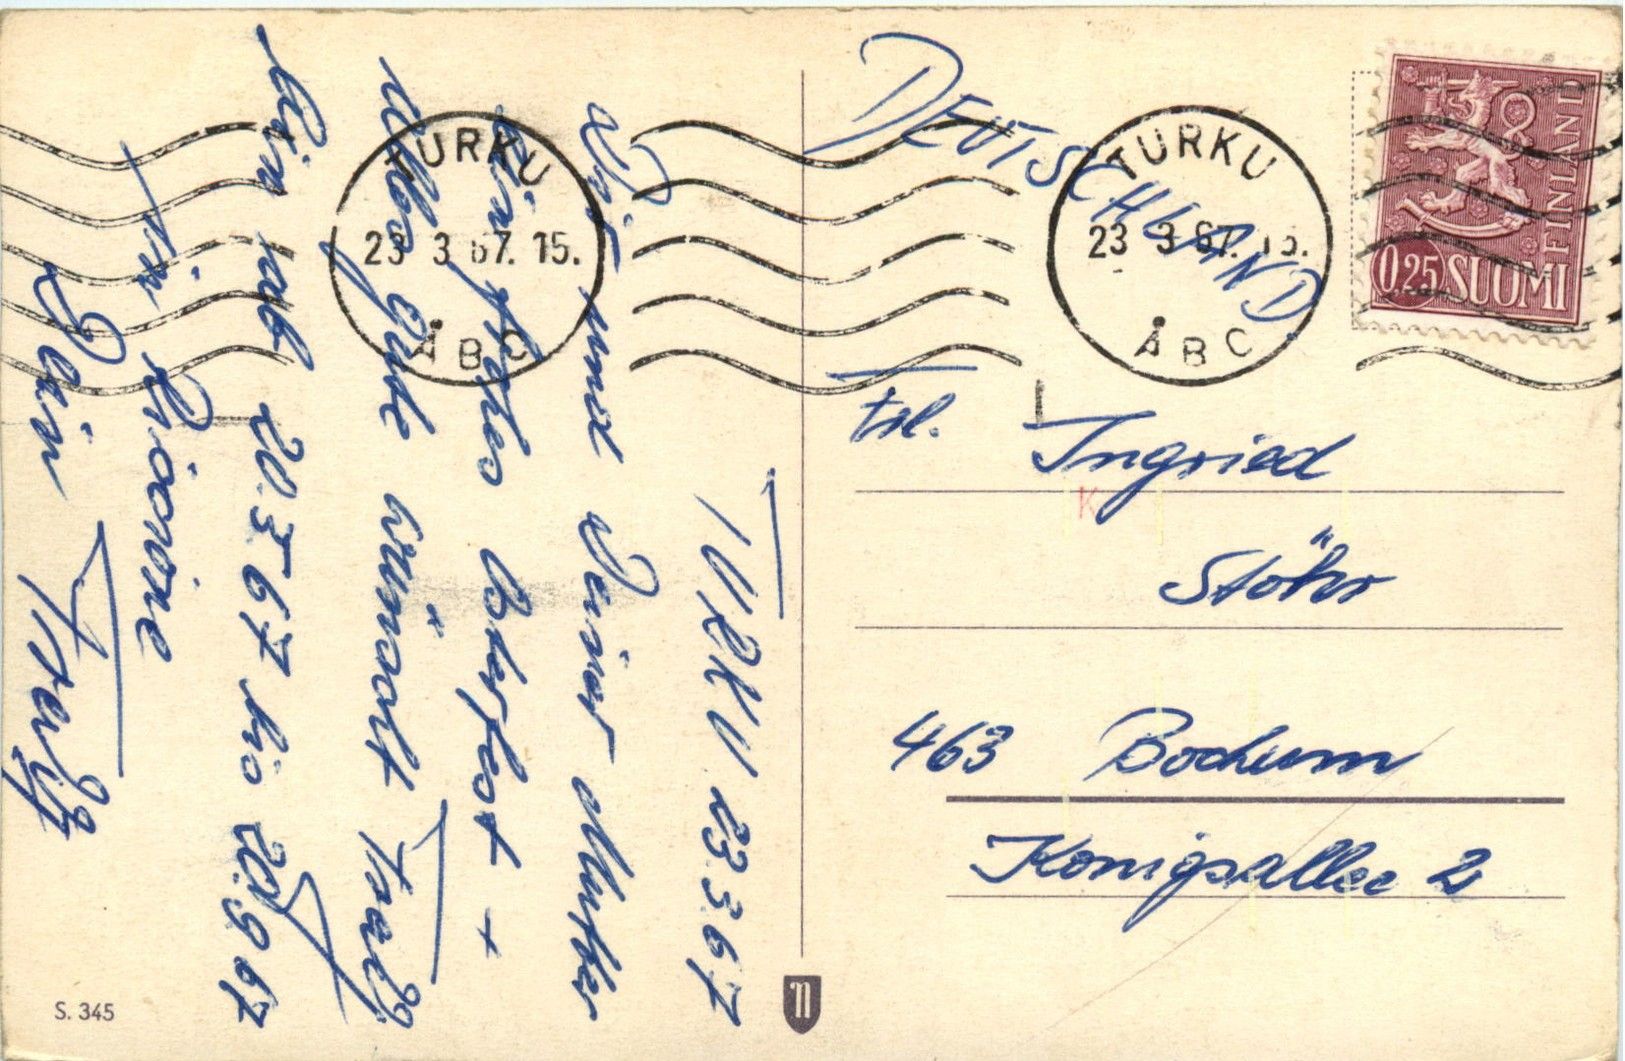 TURKU 23.3.67
Dir und Deiner Mutter
ein frohes Osterfest +
alles Gute wünscht
Bin ab 20.3.67 bis 20.9.67
in Riccione
Dein
S. 345
TURKU
23 3 67. 15.
ÅBO
DEUTSCHLAND
TURKU
23 3 67. 15.
ÅBO
0,25 SUOMI
FINLAND
Frl. Ingried
Stöhr
463 Bochum
Königsallee 2